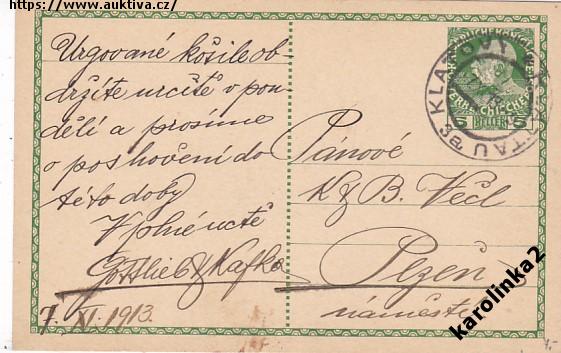 https://www.auktiva.cz/
Urgované košile ob-
držíte určitě v pon
dělí a prosíme
o poshovění do
této doby
V plné uctě
Gottlieb & Kafka
7. XI. 1913.
KLATOVY
KLATTAU
5 HELLER 5
Pánové
K & B. Věčl
Plzeň
náměstí
karolinka2